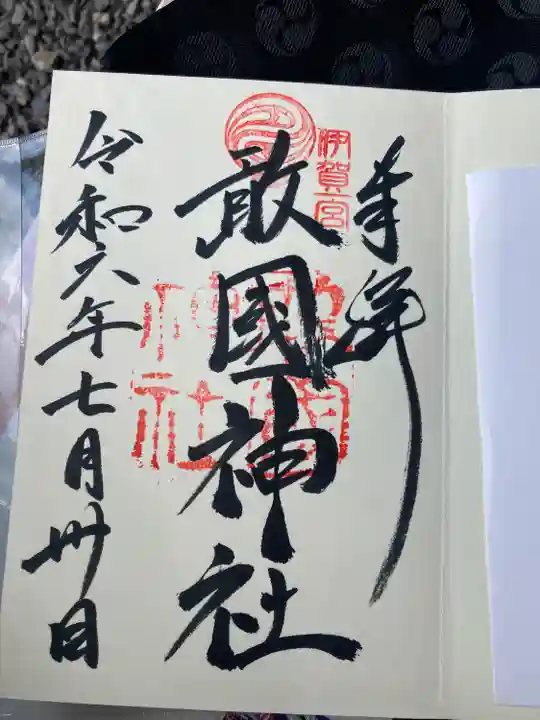 奉拝
伊賀一宮
敢國神社
令和六年七月卅日